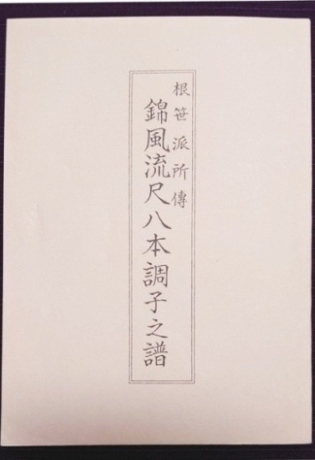 根笹派所傳
錦風流尺八本調子之譜